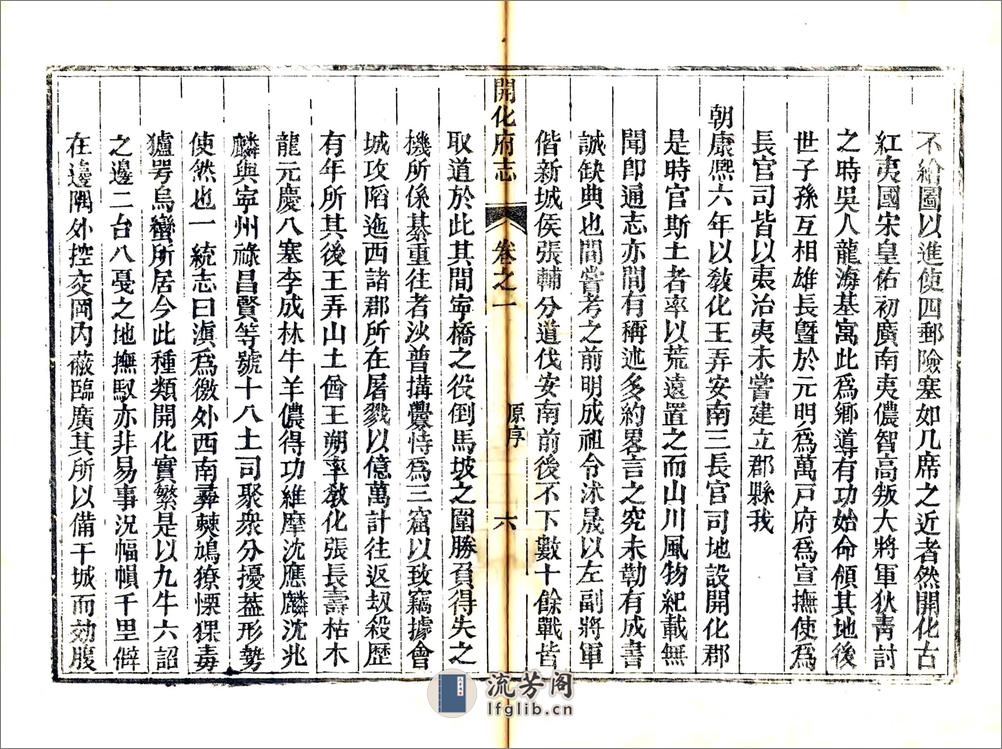 不繪圖以進使四郵險塞如几席之近者然開化古
紅夷國宋皇佑初廣南夷儂智高叛大將軍狄青討
之時吳人龍海基寓此爲鄉導有功始命領其地後
世子孫互相雄長曁於元明爲萬戸府爲宣撫使爲
長官司皆以夷治夷未嘗建立郡縣我
朝康熈六年以敎化王弄安南三長官司地設開化郡
是時官斯土者率以荒遠置之而山川風物紀載無
聞卽通志亦間有稱述多約畧言之究未勒有成書
誠缺典也間嘗考之前明成祖令沐晟以左副將軍
偕新城侯張輔分道伐安南前後不下數十餘戰皆
開化府志
卷之一
原序
六
取道於此其間寧橋之役倒馬坡之圍勝負得失之
機所係綦重往者沙普搆釁恃爲三窟以致竊據會
城攻陷迤西諸郡所在屠戮以億萬計往返刼殺歴
有年所其後王弄山土酋王朔率敎化張長壽枯木
龍元慶八寨李成林牛羊儂得功維摩沈應麟沈兆
麟與寧州祿昌賢等號十八土司聚衆分擾葢形勢
使然也一統志曰滇爲徼外西南彞僰鳩獠慄猓毒
獹㖾烏蠻所居今此種類開化實繁是以九牛六詔
之邊二台八戞之地撫馭亦非易事況幅幀千里僻
在邊隅外控交岡内蔽臨廣其所以備干城而効腹
流芳阁
lfglib.cn